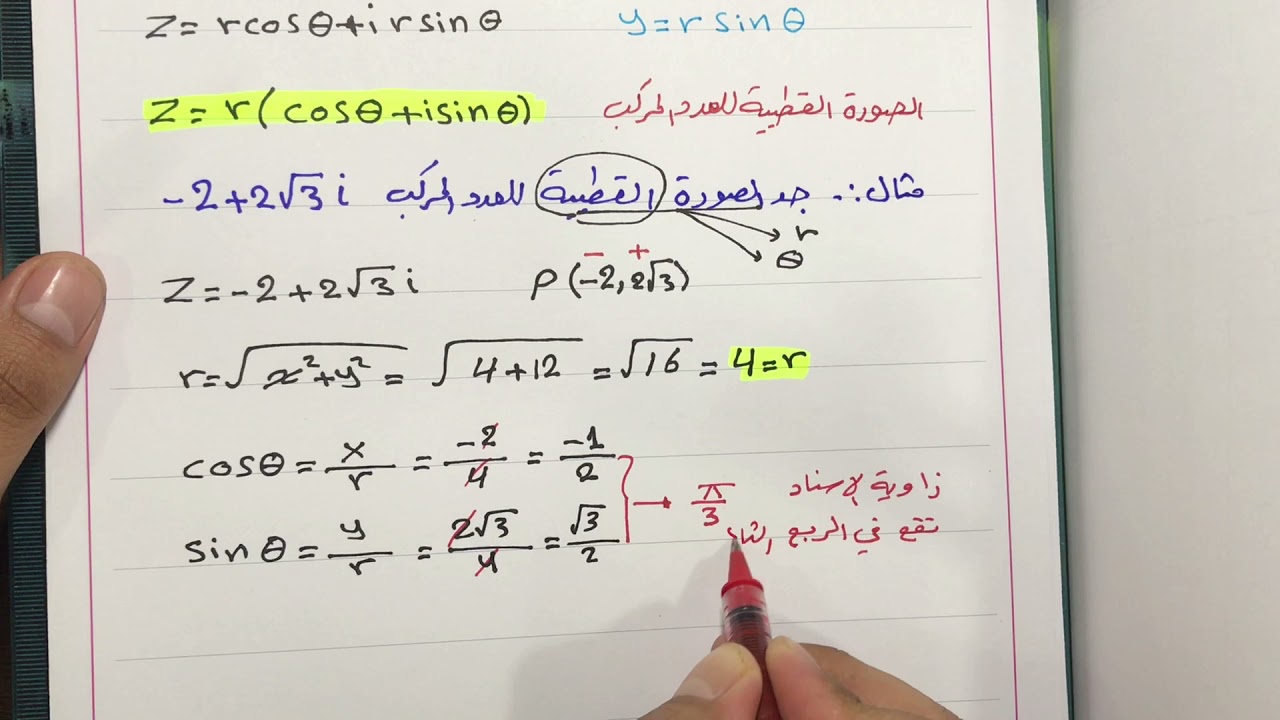 z = r cosθ + i r sinθ y = r sinθ
z = r (cosθ + i sinθ) الصورة القطبية للعدد المركب
مثال :. جد الصورة القطبية للعدد المركب -2+2√3 i
r
θ
- +
z = -2+2√3 i P(-2, 2√3)
r = √x²+y² = √4+12 = √16 = 4 = r
cosθ = x/r = -2/4 = -1/2
sinθ = y/r = 2√3/4 = √3/2
→ π/3 زاوية الإسناد
تقع في الربع